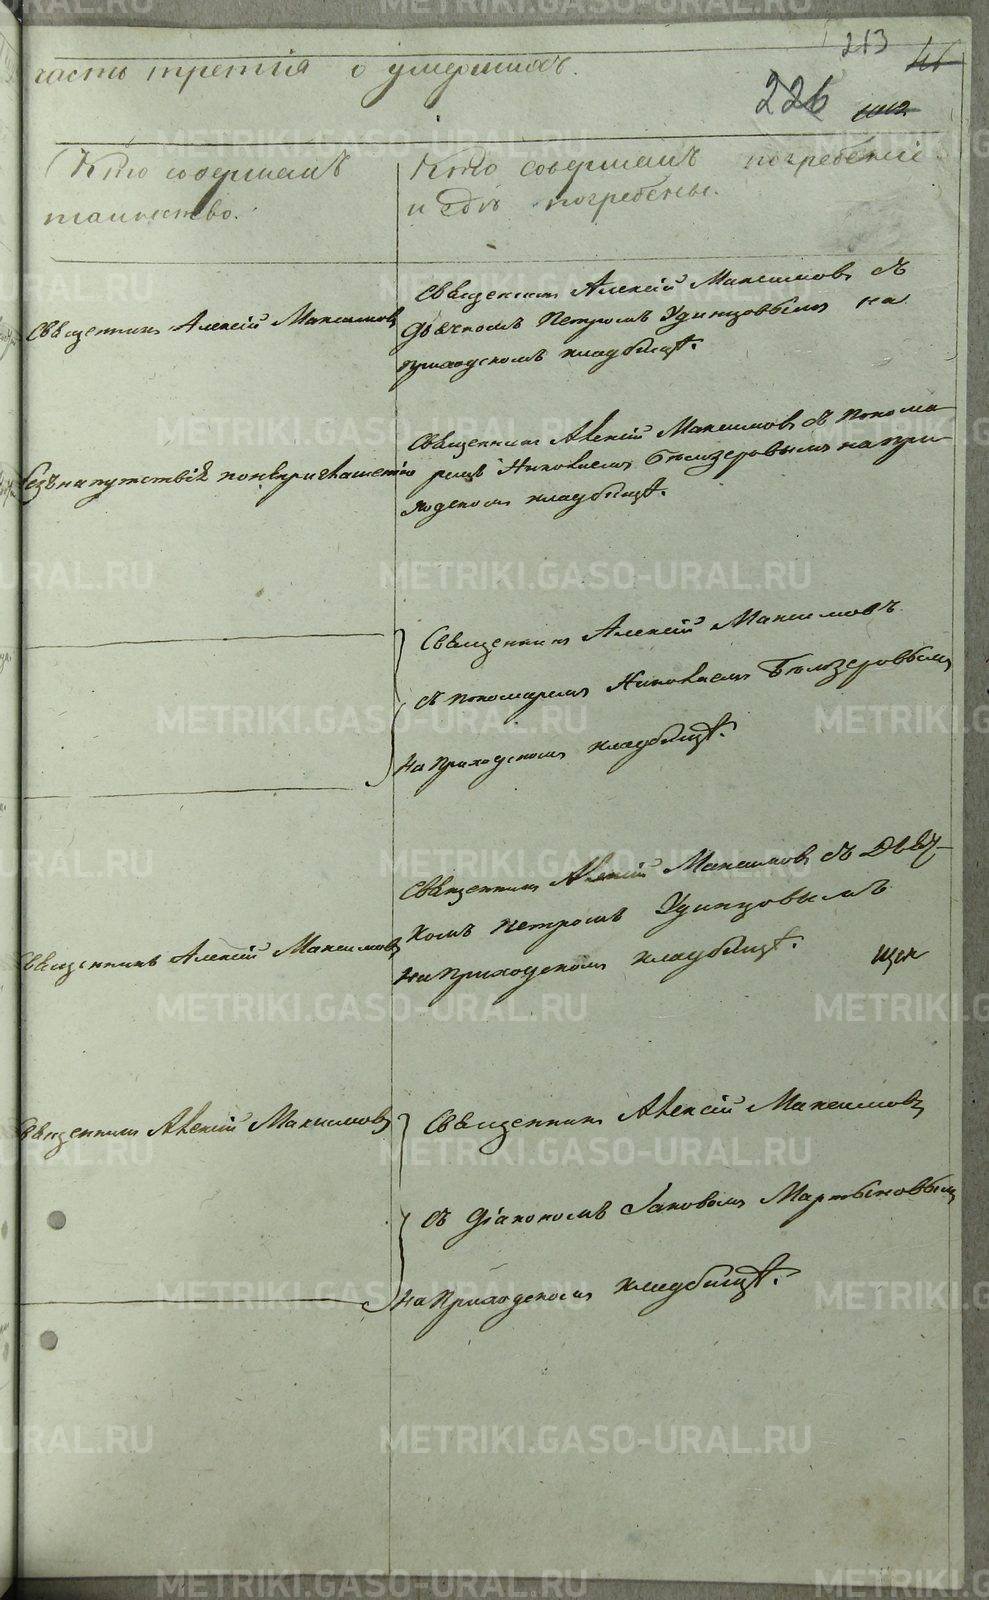 213
46
226
часть третія о умершихъ.
Кто совершалъ
таинство.
Кто совершалъ погребеніе
и гдѣ погребены.
Священникъ Алексій Максимовъ
Священникъ Алексій Максимовъ съ
дьячкомъ Петромъ Удинцовымъ на
приходскомъ кладбищѣ.
безъ напутствія
Священникъ Алексій Максимовъ съ понома
ремъ Николаемъ Бѣлозеровымъ на при
ходскомъ кладбищѣ.
Священникъ Алексій Максимовъ
съ пономаремъ Николаемъ Бѣлозеровымъ
на приходскомъ кладбищѣ.
Священникъ Алексій Максимовъ
Священникъ Алексій Максимовъ съ дьяч-
комъ Петромъ Удинцовымъ
на приходскомъ кладбищѣ.
Священникъ Алексій Максимовъ
Священникъ Алексій Максимовъ
съ діакономъ Іаковомъ Мартыновымъ
на приходскомъ кладбищѣ.
METRIKI.GASO-URAL.RU